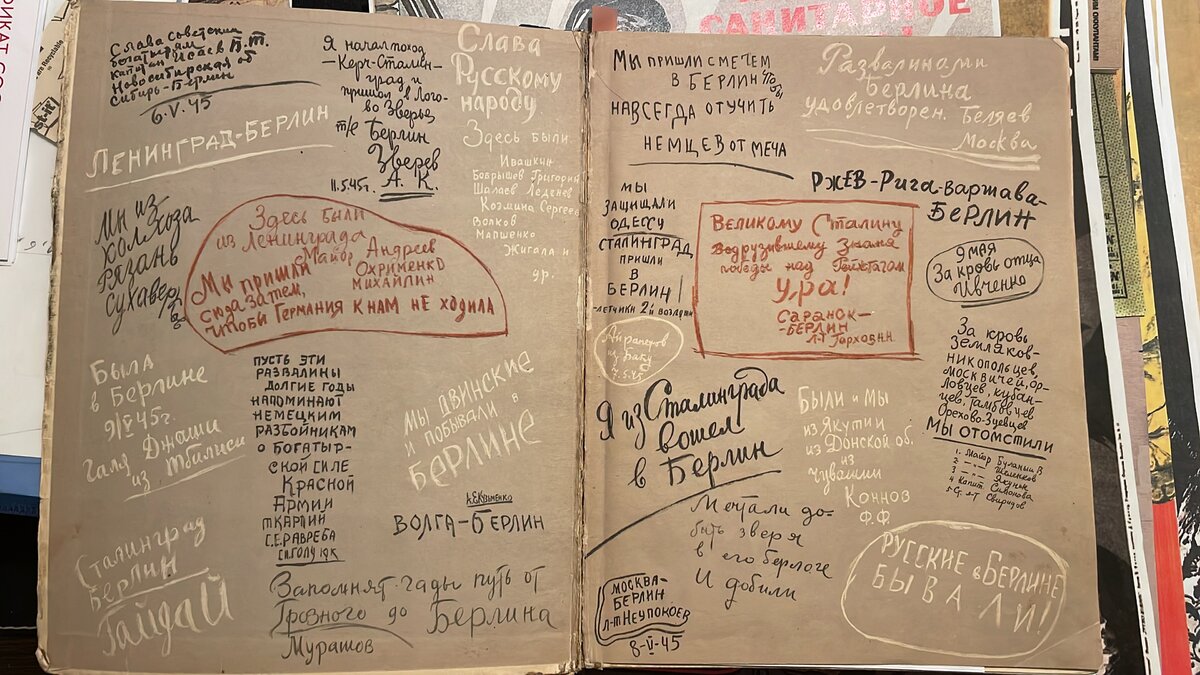 САНИТАРНОЕ
Слава советским
богатырям
капитан Исаев П.Т.
Новосибирская об
Сибирь-Берлин
6.V.45
Ленинград-Берлин
Я начал поход
-Керч-Сталин-
град и
пришол в Лого-
во Зверье,
т/е Берлин
Зверев
А. К.
11.5.45г.
Слава
Русскому
народу
Здесь были
Ивашкин
Бобрышев Григорий
Шалаев Леденев
Козмина Сергеев
Волков
Мапшенко
Жигала и
др.
Мы из
колхоза
Рязань
Сухавер
Здесь были
из Ленинграда
Майор Андреев
Охрименко
Михайлин
Мы пришли
сюда затем,
чтобы Германия к нам не ходила
Была
в Берлине
9/V 45г.
Галя Джаши
из Тбилиси
Пусть эти
развалины
долгие годы
напоминают
немецким
разбойникам
о богатыр-
ской силе
Красной
Армии
Мы двинские
и побывали в
Берлине
Волга-Берлин
Сталинград
Берлин
Гайдай
Запомнят гады путь от
Грозного до Берлина
Мурашов
Мы пришли с мечем
в Берлин чтобы
навсегда отучить
немцев от меча
Развалинами
Берлина
удовлетворен. Беляев
Москва
Ржев-Рига-Варшава-
Берлин
Мы
защищали
Одессу
Сталинград,
пришли
в
Берлин
-летчики 2й воздарм
Великому Сталину
водрузившему знамя
победы над Рейхстагом
Ура!
Саранск-
-Берлин
Л-т Горхов Н.Н.
9 мая
За кровь отца
Ивченко
из Баку
7.5.45
За кровь
земляков-
никопольцев,
москвичей, ор-
ловцев, кубан-
цев, тамбовцев
Орехово-Зуевцев
Мы отомстили
1. Майор Буланый В
2 -"- Шаленков
3 -"- Якунин
4 Капит. Симонова
5 Ст. л-т Свиридов
Я из Сталинграда
вошел
в Берлин
Были и мы
из Якутии
из Донской об.
из
Чувашии
Конноз
Ф.Ф.
Мечтали до-
быть зверя
в его берлоге
И добили
Москва-
Берлин
л-т Неупокоев
8-V-45
Русские в Берлине
бывали!